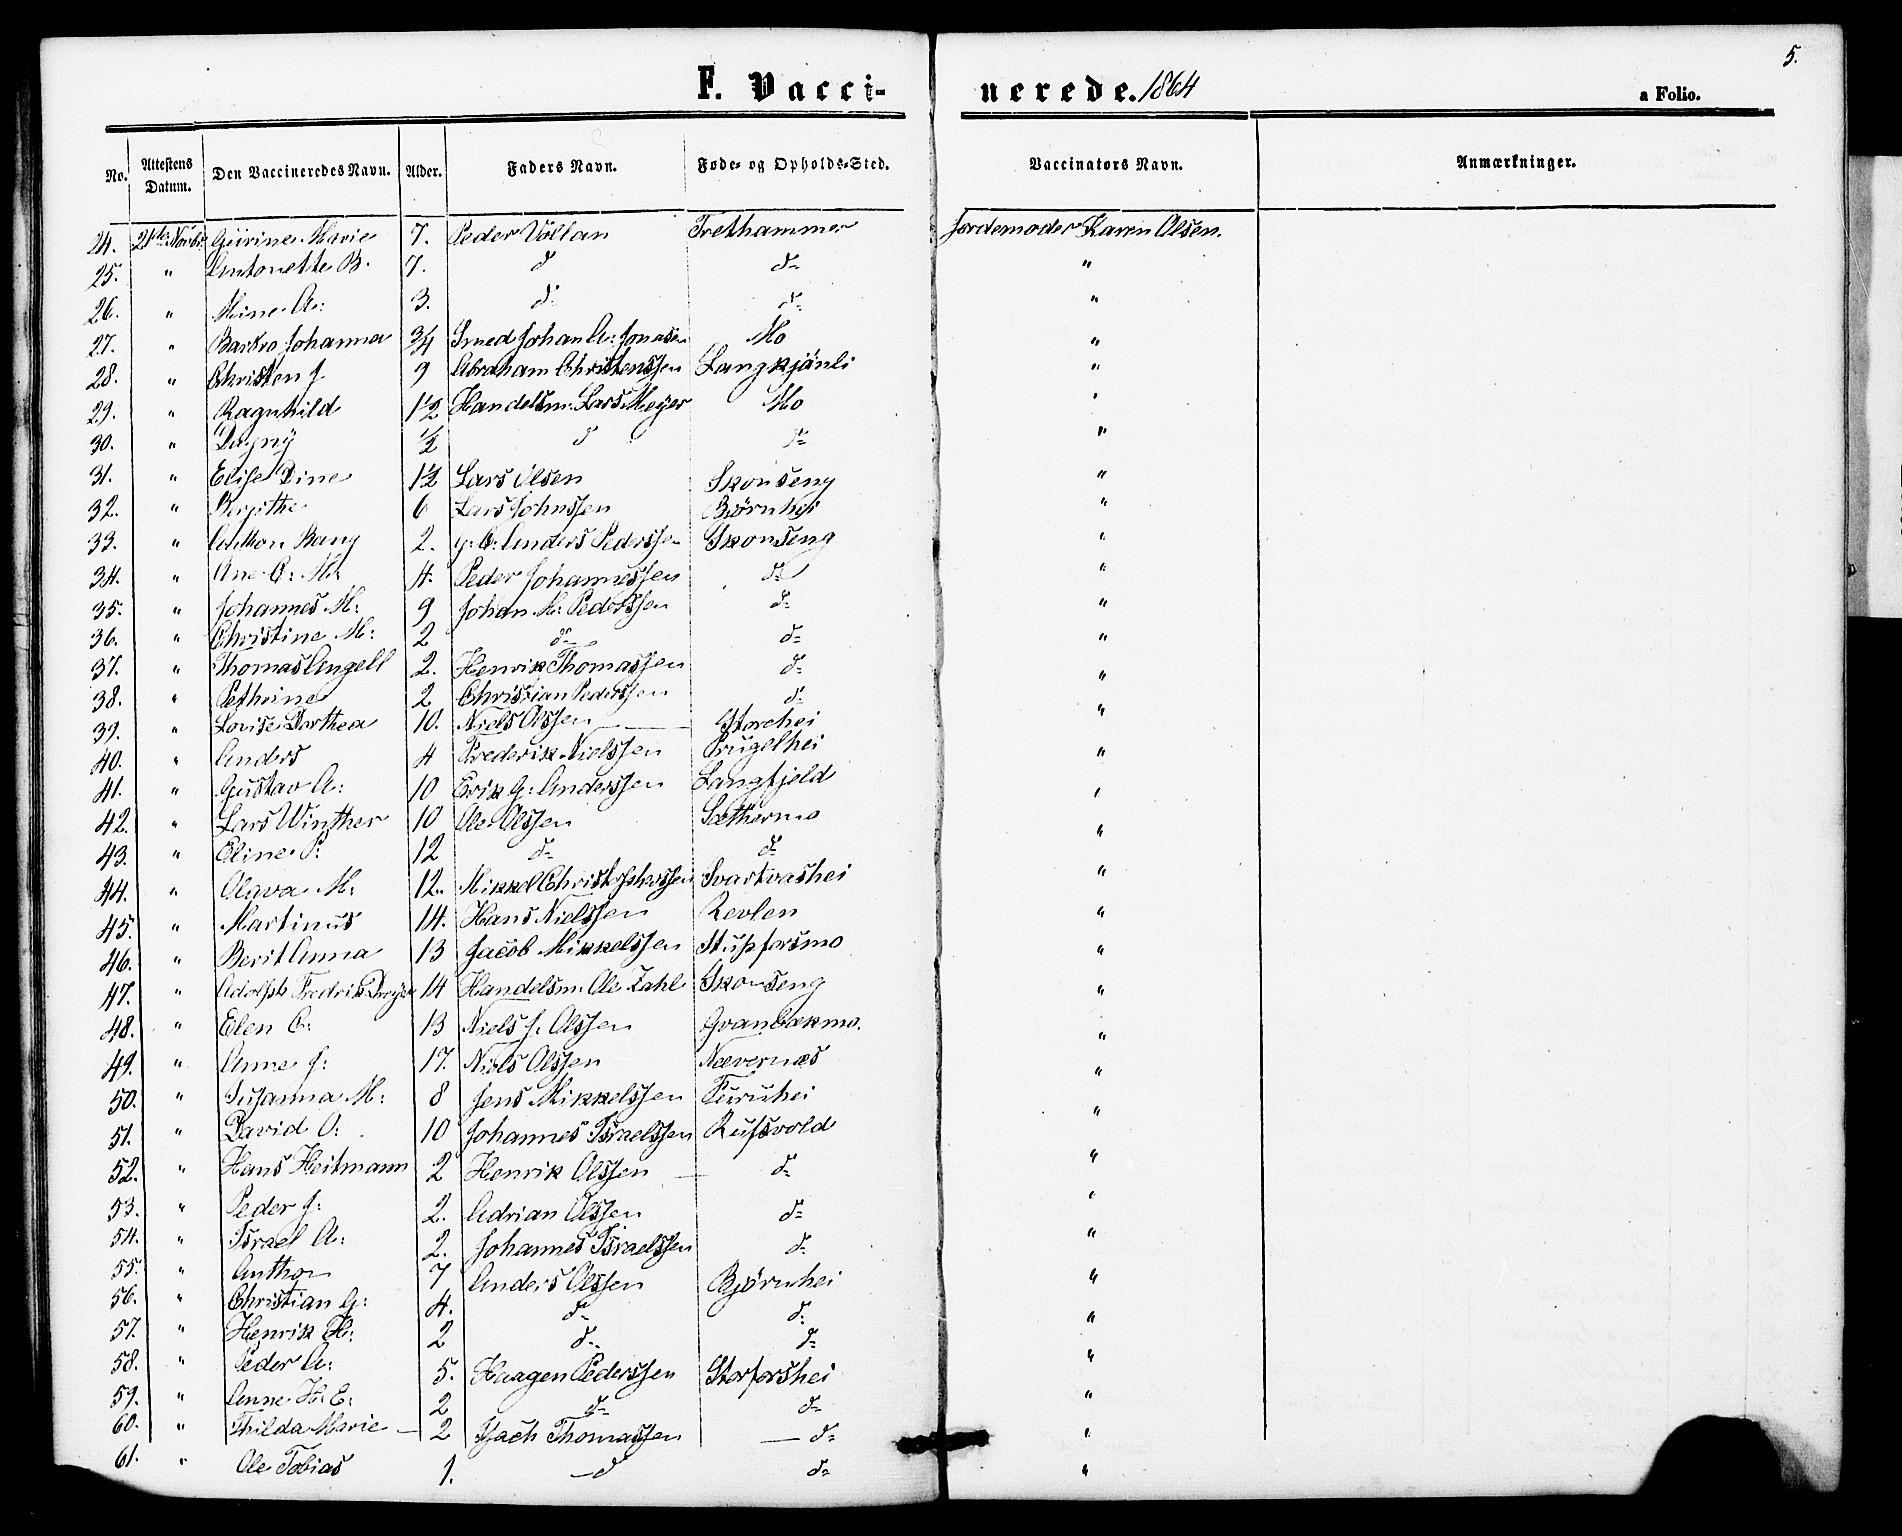 5.
F. Vacci- nerede. 1864
a Folio.
No. Attestens Datum. Den Vaccineredes Navn. Alder. Faders Navn. Føde- og Opholds-Sted. Vaccinators Navn. Anmærkninger.
24. 21de Novbr Marie 7. Peder Vollan Trethammer Jordemoder Karen Olsen.
25. " Antonette B. 7. d d- "
26. " Mine A: 3. d- d- "
27. " Barbro Johanna 3/4 Smed Johan A: Jonasen Mo "
28. " Christen J 9 Abraham Christenssen Langkjønli "
29. " Ragnhild 1½ Handelsm: Lars Meyer Mo "
30. " Dagny ½ d d- "
31. " Elise Dine 1½ Lars Olsen Skonseng "
32. " Bergithe 6 Lars Johnssen Bjørnhei "
33. " Anthon Bang 2. Anders Pederssen Skonseng "
34. " Ane C: M: 4. Peder Johannessen d- "
35. " Johannes M: 9 Johan M: Pederssen d- "
36. " Christine M: 2 d- d- "
37. " Thomas Angell 2. Henrik Thomassen d- "
38. " Petrine 2 Christian Pederssen d- "
39. " Lovise Dorthea 10. Niels Olssen Storhei "
40. " Anders 4 Frederik Nielssen Prugelhei "
41. " Gustav A: 10 Erik G: Anderssen Langfjeld "
42. " Lars Winther 10 Ole Olssen Sæthermo "
43. " Eline P: 12 d- d- "
44. " Olava M: 12. Mikkel Christophersen Svartvashei "
45. " Martinus 14. Hans Nielssen Revlen "
46. " Berit Anna 13 Jacob Mikkelssen Stupforsmo "
47. " Adolph Fredrik Dreyer 14 Handelsm: Ole Zahl Skonseng "
48. " Elen C: 13 Niels J. Olssen Granbækmo. "
49. " Anne J: 17. Niels Olssen Nævernæs "
50. " Susanna M: 8 Jens Mikkelssen Furuhei "
51. " David O: 10 Johannes Israelssen Rufsvold "
52. " Hans Heitmann 2 Henrik Olssen d- "
53. " Peder J: 2. Adrian Olssen d- "
54. " Israel A: 2. Johannes Israelssen d- "
55. " Anthon 7 Anders Olssen Bjørnhei "
56. " Christian G: 4. d- d- "
57. " Henrik H: 2 d- d- "
58. " Peder A: 5. Haagen Pederssen Storforshei "
59. " Anne H: E: 2 d- d- "
60. " Thilda Marie — 2 Isach Thomassen — d- "
61. " Ole Tobias 1. — d d- "